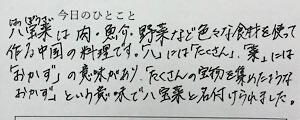 今日のひとこと
はっぽうさい
八宝菜は肉・魚介・野菜など色々な食材を使って
作る中国の料理です。「八」には「たくさん」、「菜」には
「おかず」の意味があり、「たくさんの宝物を集めたような
おかず」という意味で八宝菜と名付けられました。